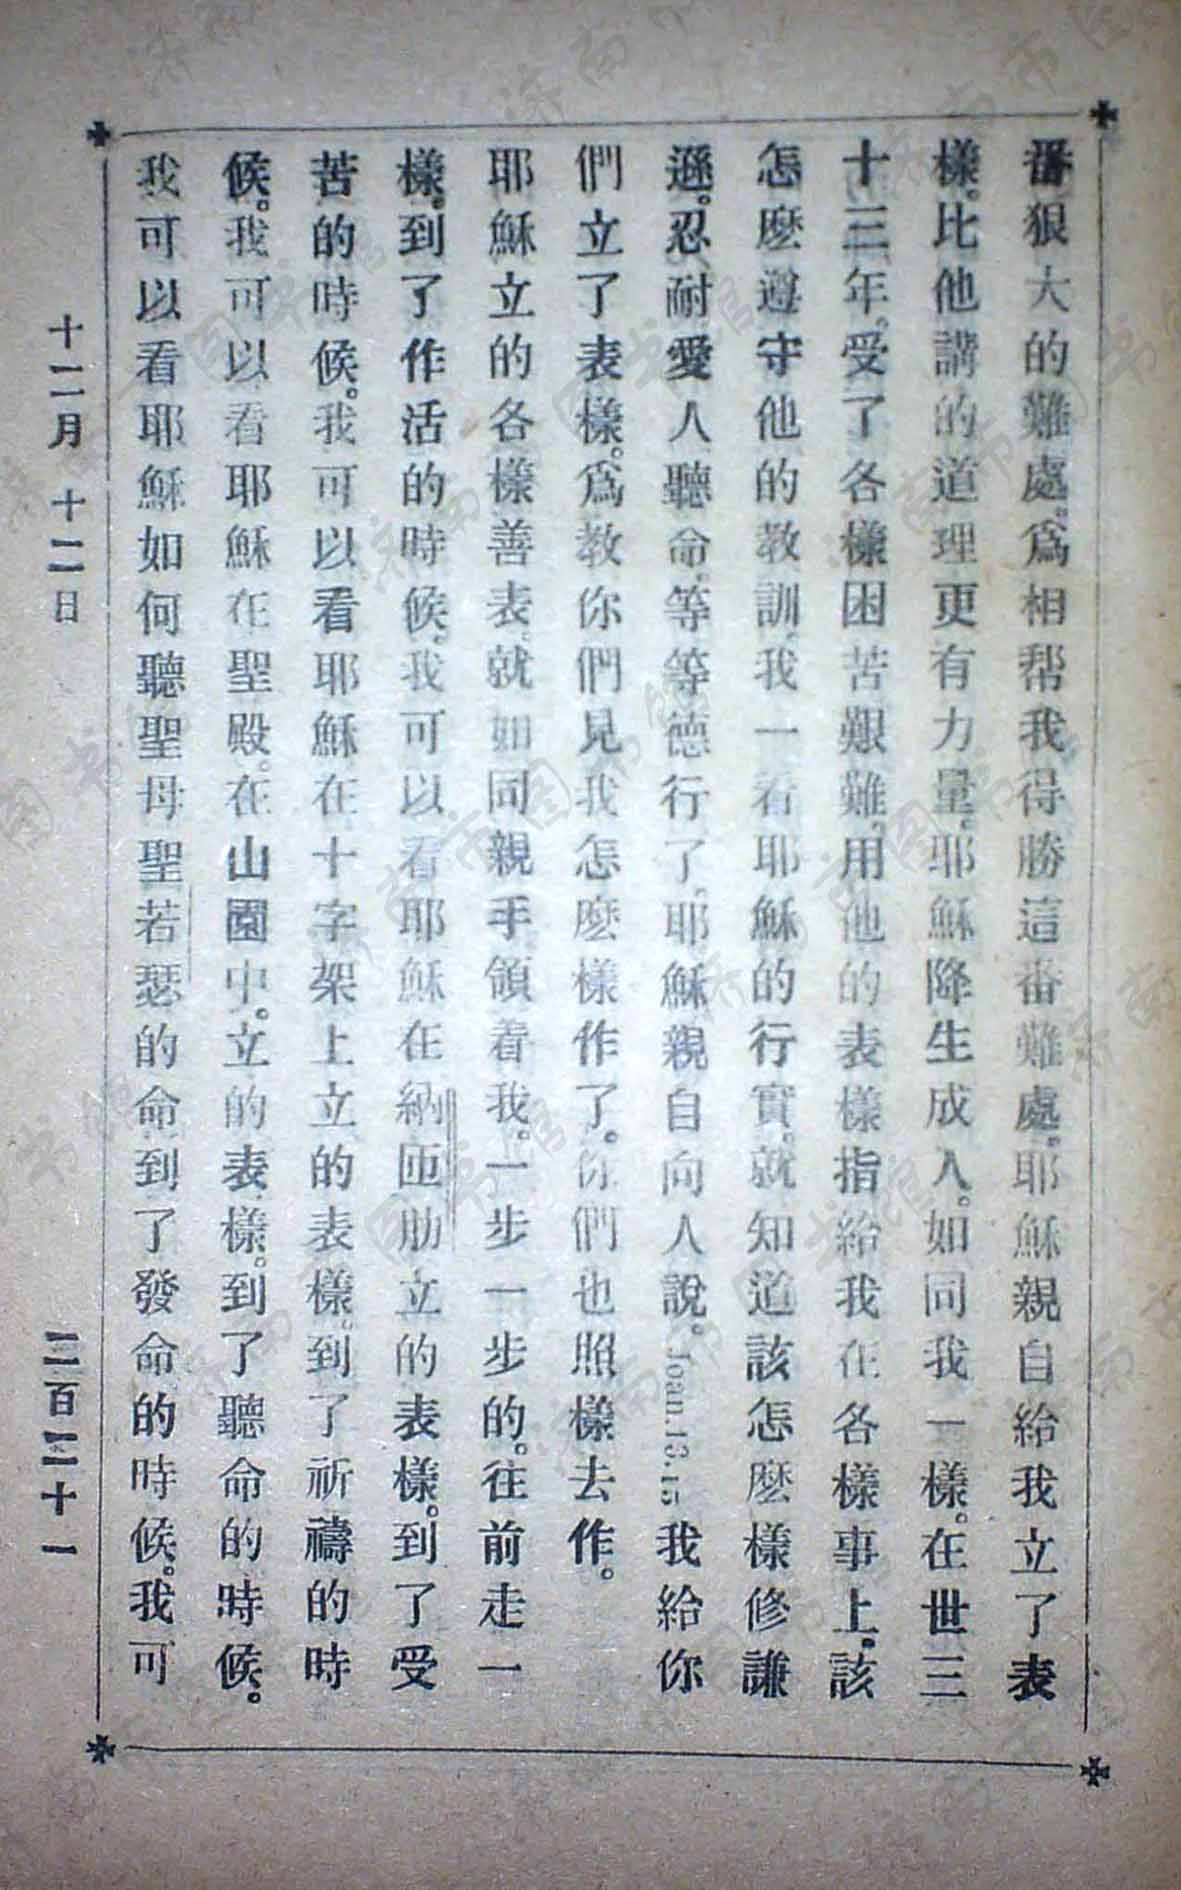 番狠大的難處。爲相帮我得勝這番難處。耶穌親自給我立了表
樣。比他講的道理更有力量。耶穌降生成人。如同我一樣。在世三
十三年。受了各樣困苦艱難。用他的表樣指給我在各樣事上。該
怎麽遵守他的教訓。我一看耶穌的行實。就知道該怎麽樣修謙
遜。忍耐愛人聽命。等等德行了。耶穌親自向人說。Joan.13.15我給你
們立了表樣。爲教你們見我怎麽樣作了。你們也照樣去作。
耶穌立的各樣善表。就如同親手領着我。一步一步的。往前走一
樣。到了作活的時候。我可以看耶穌在納匝肋立的表樣。到了受
苦的時候。我可以看耶穌在十字架上立的表樣。到了祈禱的時
候。我可以看耶穌在聖殿。在山園中。立的表樣。到了聽命的時候。
我可以看耶穌如何聽聖母聖若瑟的命到了發命的時候。我可
十二月 十二日
三百三十一
济南市图书馆